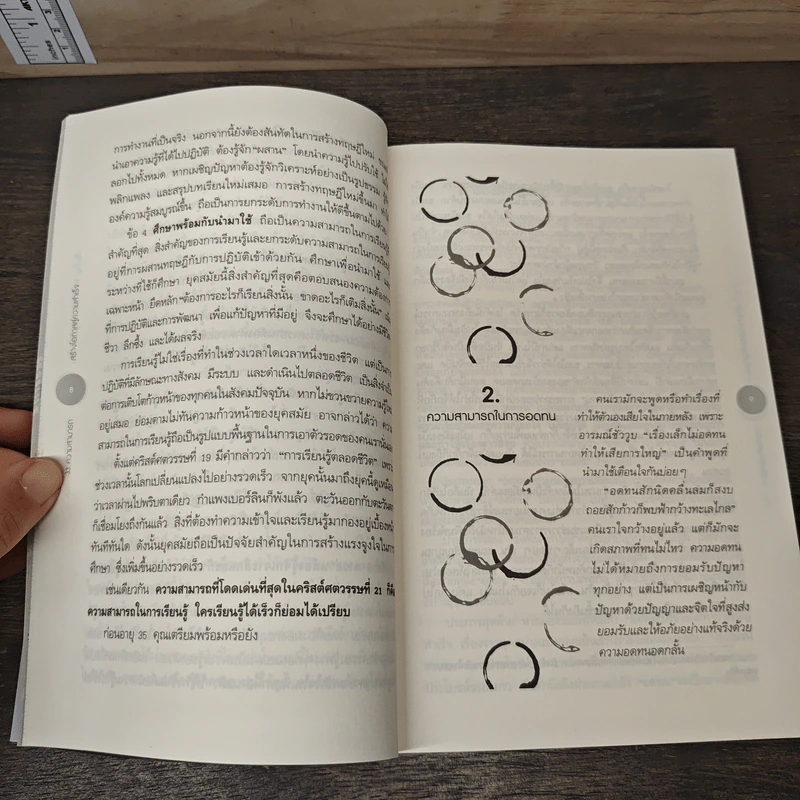 การทำงานที่เป็นจริง นอกจากนี้ยังต้องสันทัดในการสร้างทฤษฎีใหม่
นำเอาความรู้ที่ได้ไปปฏิบัติ ต้องรู้จัก "ผสาน" โดยนำความรู้ไปปรับใช้
ลอกไปทั้งหมด หากเผชิญปัญหาต้องรู้จักวิเคราะห์อย่างเป็นรูปธรรม
พลิกแพลง และสรุปบทเรียนใหม่เสมอ การสร้างทฤษฎีใหม่ขึ้นมา
องค์ความรู้สมบูรณ์ขึ้น ถือเป็นการยกระดับการทำงานให้ดีขึ้นตามไปด้วย
ข้อ 4 ศึกษาพร้อมกับนำมาใช้ ถือเป็นความสามารถในการเรียนรู้
สำคัญที่สุด สิ่งสำคัญของการเรียนรู้และยกระดับความสามารถในการเรียนรู้
อยู่ที่การผสานทฤษฎีกับการปฏิบัติเข้าด้วยกัน ศึกษาเพื่อนำมาใช้
ระหว่างที่ใช้ก็ศึกษา ยุคสมัยนี้สิ่งสำคัญที่สุดคือตอบสนองความต้องการ
เฉพาะหน้า ยึดหลัก "ต้องการอะไรก็เรียนสิ่งนั้น ขาดอะไรก็เติมสิ่งนั้น"
ที่การปฏิบัติและการพัฒนา เพื่อแก้ปัญหาที่มีอยู่ จึงจะศึกษาได้อย่างมีชีวิต
ชีวา ลึกซึ้ง และได้ผลจริง
การเรียนรู้ไม่ใช่เรื่องที่ทำในช่วงเวลาใดเวลาหนึ่งของชีวิต แต่เป็นการ
ปฏิบัติที่มีลักษณะทางสังคม มีระบบ และดำเนินไปตลอดชีวิต เป็นสิ่งจำเป็น
ต่อการเติบโตก้าวหน้าของทุกคนในสังคมปัจจุบัน หากไม่ขวนขวายความรู้ใหม่
อยู่เสมอ ย่อมตามไม่ทันความก้าวหน้าของยุคสมัย อาจกล่าวได้ว่า
สามารถในการเรียนรู้ถือเป็นรูปแบบพื้นฐานในการเอาตัวรอดของคนเรานั่นเอง
ตั้งแต่คริสต์ศตวรรษที่ 19 มีคำกล่าวว่า "การเรียนรู้ตลอดชีวิต" เพราะ
ช่วงเวลานั้นโลกเปลี่ยนแปลงไปอย่างรวดเร็ว จากยุคนั้นมาถึงยุคนี้ดูเหมือน
ว่าเวลาผ่านไปพริบตาเดียว กำแพงเบอร์ลินก็พังแล้ว ตะวันออกกับตะวันตก
ก็เชื่อมโยงถึงกันแล้ว สิ่งที่ต้องทำความเข้าใจและเรียนรู้มากองอยู่เบื้องหน้า
ทันทีทันใด ดังนั้นยุคสมัยถือเป็นปัจจัยสำคัญในการสร้างแรงจูงใจในการ
ศึกษา ซึ่งเพิ่มขึ้นอย่างรวดเร็ว
เช่นเดียวกัน ความสามารถที่โดดเด่นที่สุดในคริสต์ศตวรรษที่ 21 ก็คือ
ความสามารถในการเรียนรู้ ใครเรียนรู้ได้เร็วก็ย่อมได้เปรียบ
ก่อนอายุ 35 คุณเตรียมพร้อมหรือยัง
8
2.
ความสามารถในการอดทน
คนเรามักจะพูดหรือทำเรื่องที่
ทำให้ตัวเองเสียใจในภายหลัง เพราะ
อารมณ์ชั่ววูบ "เรื่องเล็กไม่อดทน
ทำให้เสียการใหญ่" เป็นคำพูดที่
นำมาใช้เตือนใจกันบ่อยๆ
"อดทนสักนิดคลื่นลมก็สงบ
ถอยสักก้าวก็พบฟ้ากว้างทะเลไกล"
คนเราใจกว้างอยู่แล้ว แต่ก็มักจะ
เกิดสภาพที่ทนไม่ไหว ความอดทน
ไม่ได้หมายถึงการยอมรับปัญหา
ทุกอย่าง แต่เป็นการเผชิญหน้ากับ
ปัญหาด้วยปัญญาและจิตใจที่สูงส่ง
ยอมรับและให้อภัยอย่างแท้จริงด้วย
ความอดทนอดกลั้น
9